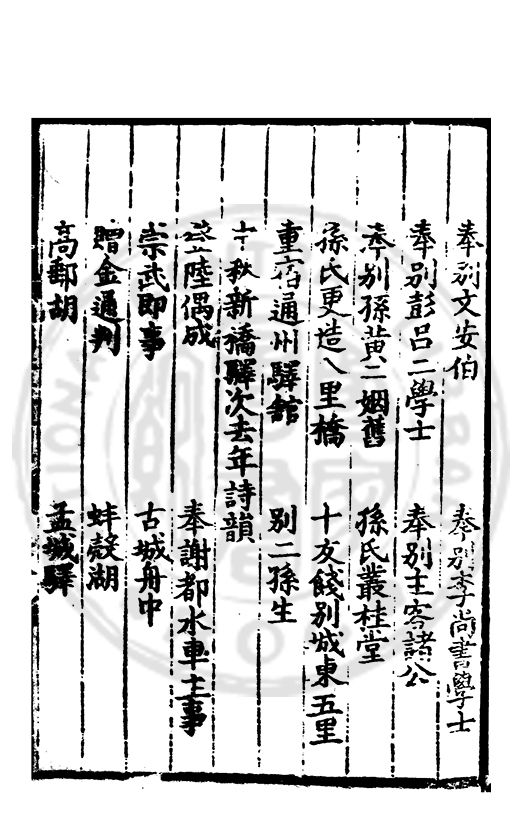 奉別文安伯　奉別李尚書學士
奉別彭呂二學士　奉別主客諸公
奉別孫黃二姻舊　孫氏叢桂堂
孫氏更造八里橋　十友餞別城東五里
重宿通州驛舘　別二孫生
中秋新橋驛次去年詩韻
登陸偶成　奉謝都水車主事
崇武即事　古城舟中
贈金通判　蚌殼湖
高郵胡　孟城驛